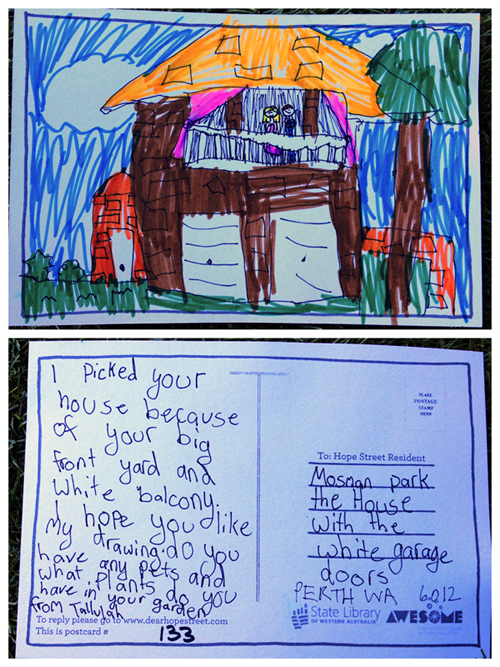 I Picked your
house because
of your big
front yard and
white balcony.
My hope you like
drawing. do you
have any pets and
what plants do you
have in your garden
from Tallulah
To reply please go to www.dearhopestreet.com
This is postcard # 133
PLACE
POSTAGE
STAMP
HERE
To: Hope Street Resident
Mosman park
the House
with the
white garage
doors
PERTH WA 6012
State Library
OF WESTERN AUSTRALIA
AWESOME